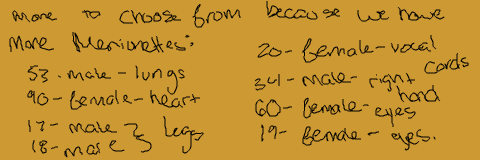 more to choose from because we have
more Merionettes:
53. male - lungs
90 - female - heart
17 - male } legs
18 - male }
20 - female - vocal cords
34 - male - right hand
60 - female - eyes
19 - female - eyes.